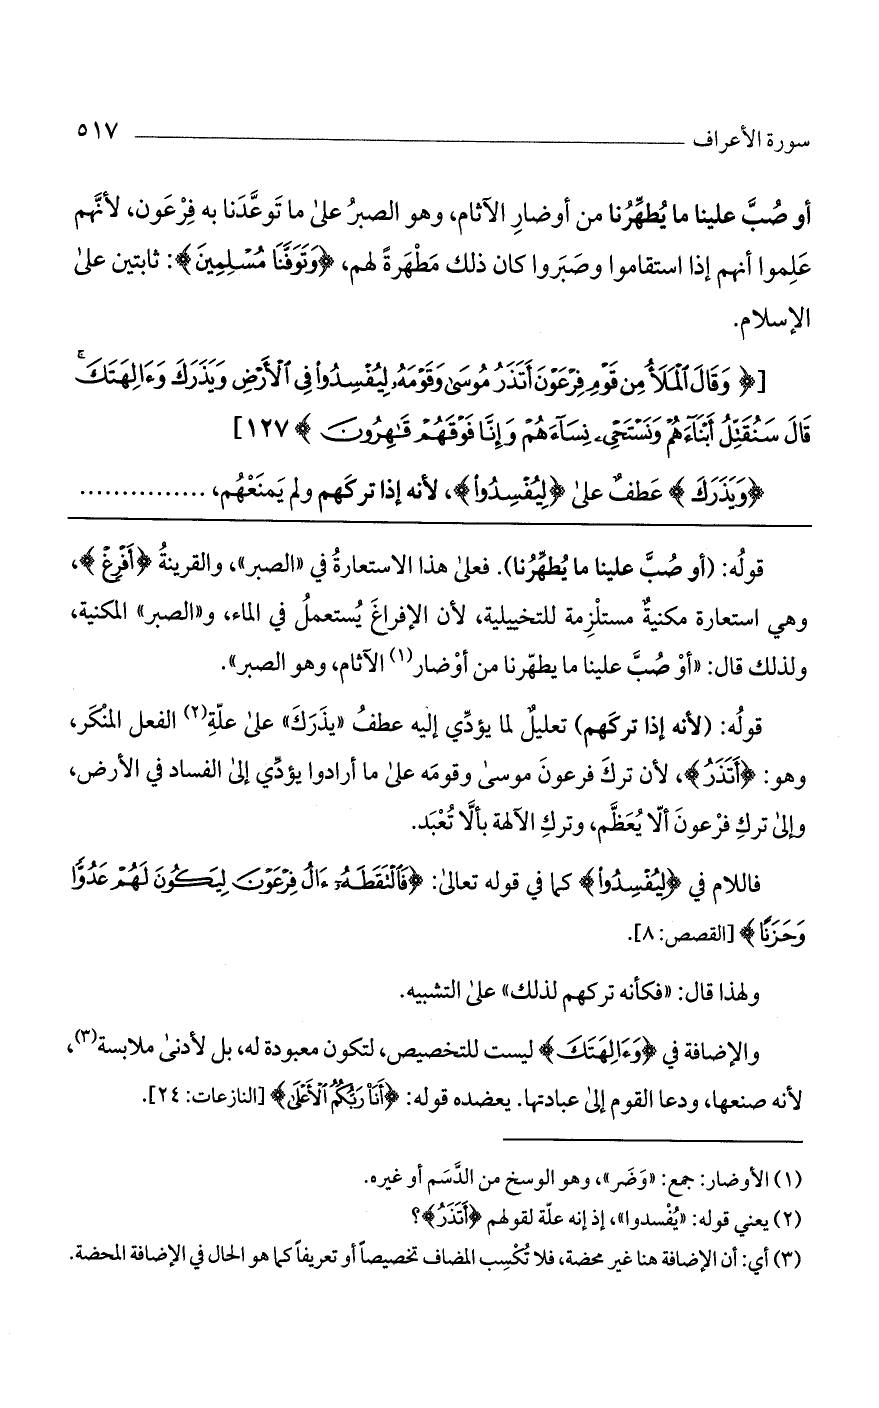 سورة الأعراف ٥١٧
أو صُبَّ علينا ما يُطهِّرُنا من أوضارِ الآثام، وهو الصبرُ علىٰ ما تَوعَّدَنا به فِرْعَون، لأنَّهم
عَلِموا أنهم إذا استقاموا وصَبَروا كان ذلك مَطْهَرةً لهم، ﴿وَتَوَفَّنَا مُسْلِمِينَ﴾: ثابتين علىٰ
الإسلام.
[﴿ وَقَالَ ٱلْمَلَأُ مِن قَوْمِ فِرْعَوْنَ أَتَذَرُ مُوسَىٰ وَقَوْمَهُۥ لِيُفْسِدُوا۟ فِى ٱلْأَرْضِ وَيَذَرَكَ وَءَالِهَتَكَ ۚ
قَالَ سَنُقَتِّلُ أَبْنَآءَهُمْ وَنَسْتَحْىِۦ نِسَآءَهُمْ وَإِنَّا فَوْقَهُمْ قَٰهِرُونَ ﴾ ١٢٧]
﴿وَيَذَرَكَ ﴾ عَطفٌ علىٰ ﴿لِيُفْسِدُوا۟﴾، لأنه إذا تركَهم ولم يَمنَعْهُم، ...............
قولُه: (أو صُبَّ علينا ما يُطهِّرُنا). فعلىٰ هذا الاستعارةُ في «الصبر»، والقرينةُ ﴿أَفْرِغْ ﴾،
وهي استعارة مكنيةٌ مستلْزِمة للتخييلية، لأن الإفراغَ يُستعملُ في الماء، و«الصبر» المكنية،
ولذلك قال: «أوْ صُبَّ علينا ما يطهّرنا من أوْضار(١) الآثام، وهو الصبر».
قولُه: (لأنه إذا تركَهم) تعليلٌ لما يؤدِّي إليه عطفُ «يذَرَكَ» علىٰ علّةِ(٢) الفعل المنْكَر،
وهو: ﴿أَتَذَرُ﴾، لأن تركَ فرعونَ موسىٰ وقومَه علىٰ ما أرادوا يؤدِّي إلىٰ الفساد في الأرض،
وإلىٰ تركِ فرْعونَ ألّا يُعَظَّم، وتركِ الآلهة بألَّا تُعْبَد.
فاللام في ﴿لِيُفْسِدُوا۟﴾ كما في قوله تعالىٰ: ﴿فَٱلْتَقَطَهُۥٓ ءَالُ فِرْعَوْنَ لِيَكُونَ لَهُمْ عَدُوًّا
وَحَزَنًا ﴾ [القصص: ٨].
ولهذا قال: «فكأنه تركهم لذلك» علىٰ التشبيه.
والإضافة في ﴿وَءَالِهَتَكَ﴾ ليست للتخصيص، لتكون معبودة له، بل لأدنىٰ ملابسة(٣)،
لأنه صنعها، ودعا القوم إلىٰ عبادتها. يعضده قوله: ﴿أَنَا۠ رَبُّكُمُ ٱلْأَعْلَىٰ﴾ [النازعات: ٢٤].
(١) الأوضار: جمع: «وَضَر»، وهو الوسخ من الدَّسَم أو غيره.
(٢) يعني قوله: «يُفْسدوا»، إذ إنه علّة لقولهم ﴿أَتَذَرُ﴾؟
(٣) أي: أن الإضافة هنا غير محضة، فلا تُكْسِب المضاف تخصيصاً أو تعريفاً كما هو الحال في الإضافة المحضة.